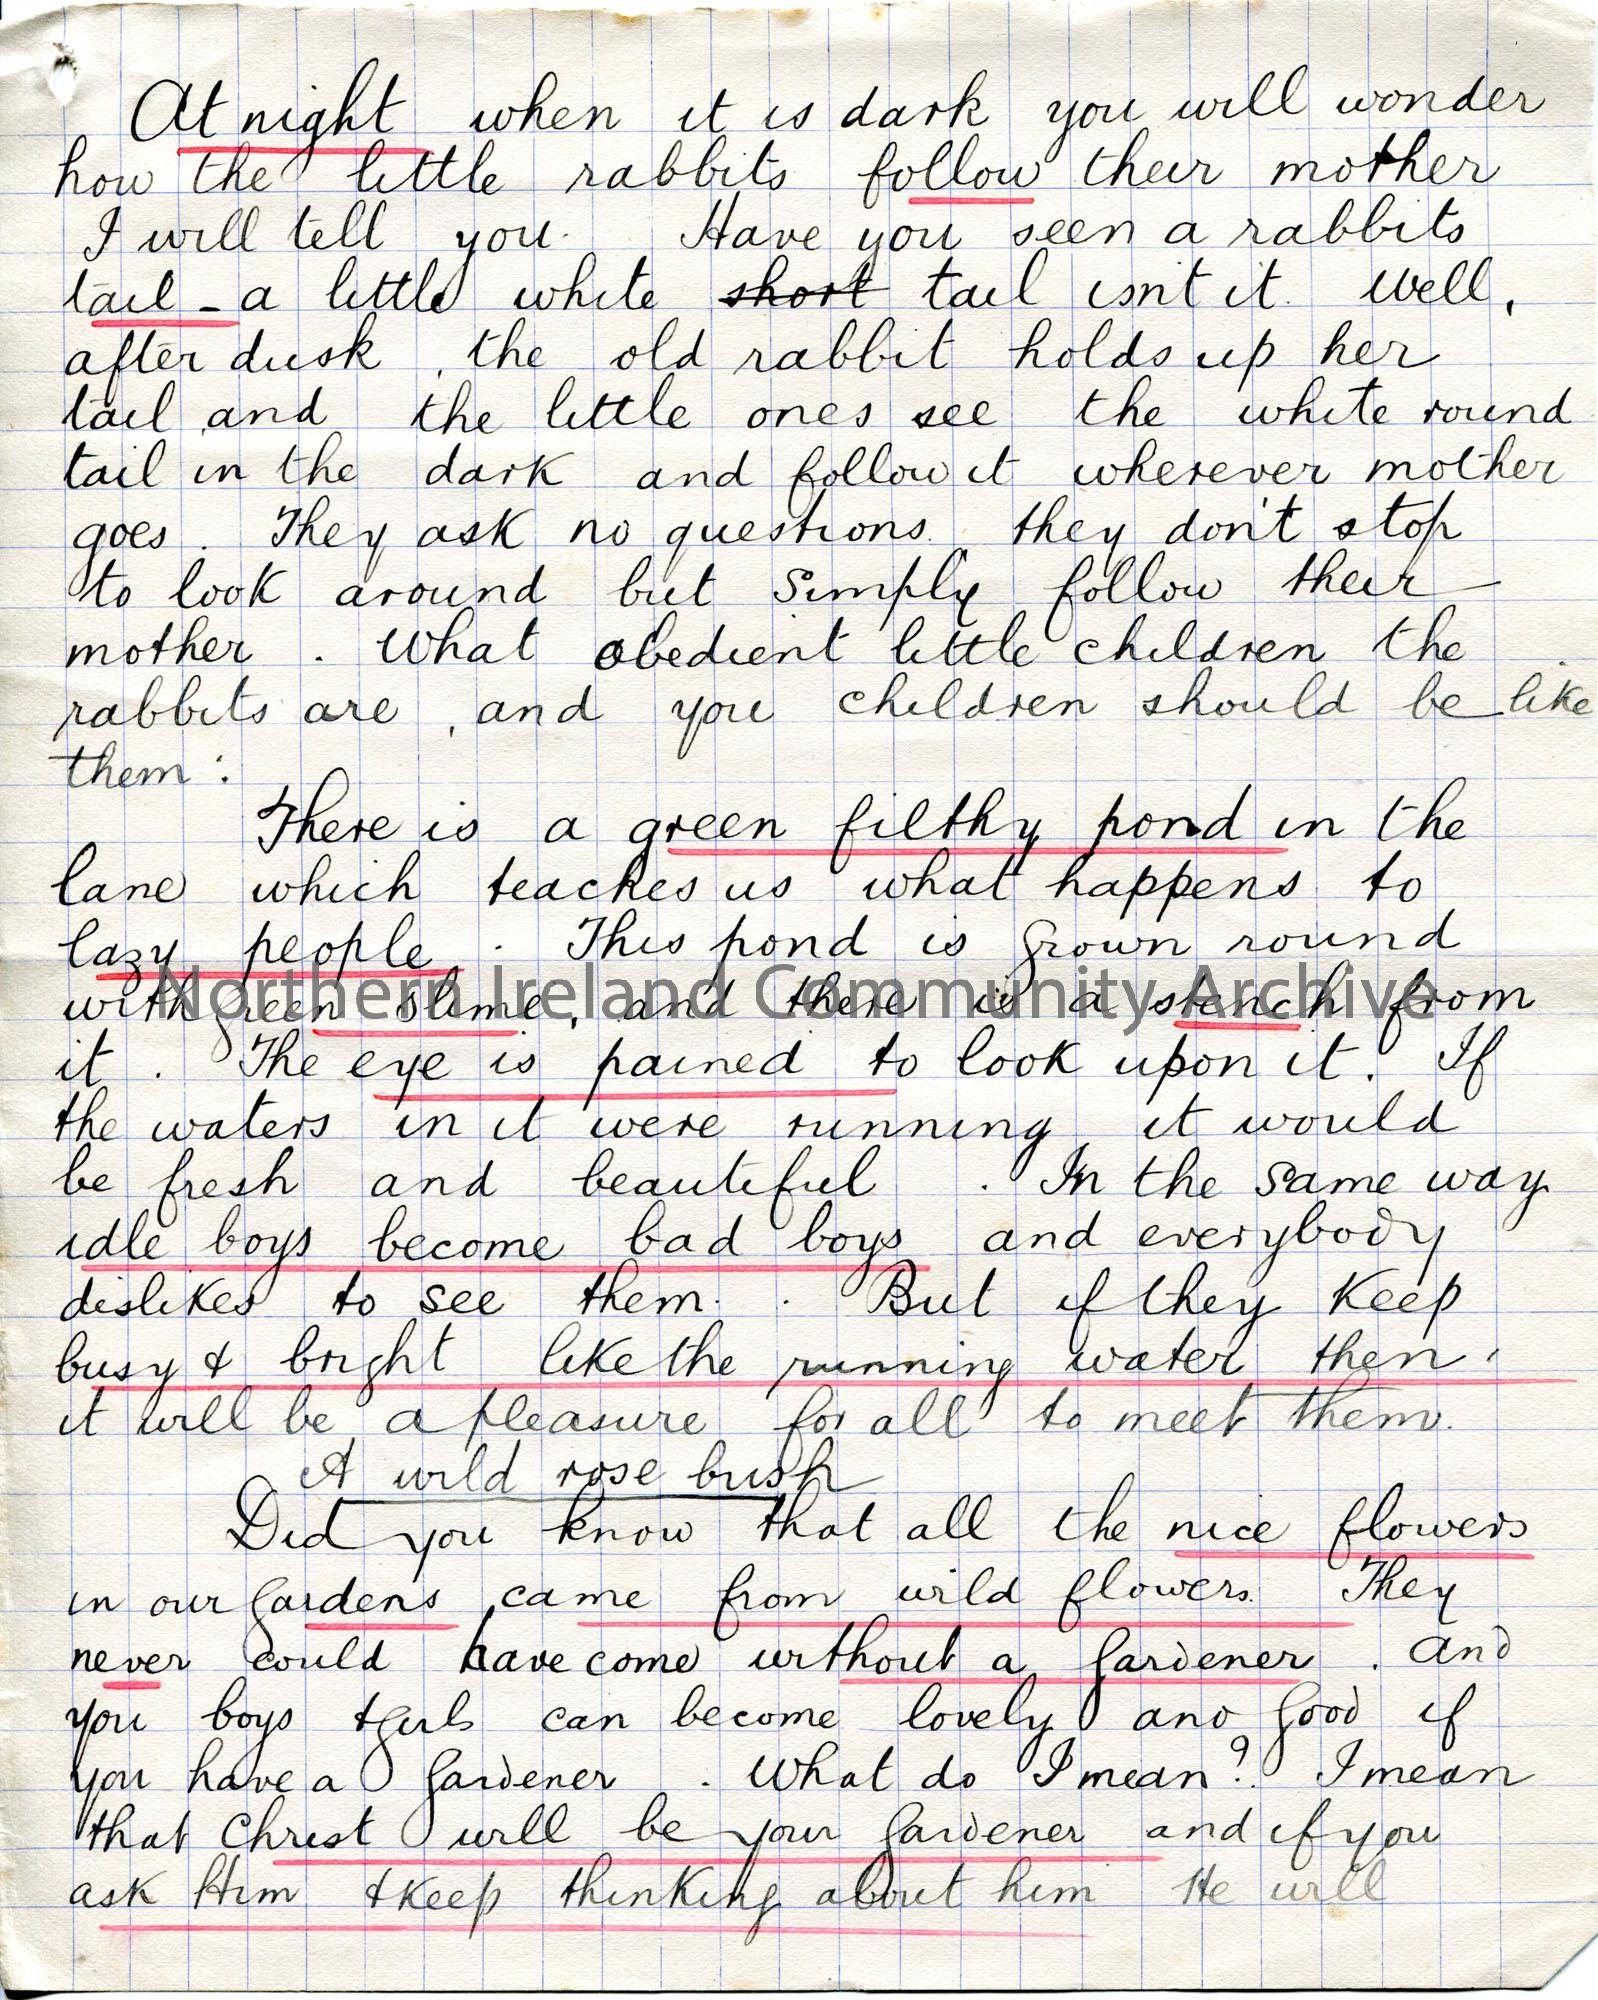 At night when it is dark you will wonder
how the little rabbits follow their mother
I will tell you. Have you seen a rabbits
tail - a little white short tail isn't it. Well,
after dusk, the old rabbit holds up her
tail and the little ones see the white round
tail in the dark and follow it wherever mother
goes. They ask no questions. they don't stop
to look around but simply follow their
mother. What obedient little children the
rabbits are, and you children should be like
them:
There is a green filthy pond in the
lane which teaches us what happens to
lazy people. This pond is grown round
with green slime, and there is a stench from
Northern Ireland Community Archive
it. The eye is pained to look upon it. If
the waters in it were running it would
be fresh and beautiful. In the same way
idle boys become bad boys and everybody
dislikes to see them. But if they keep
busy & bright like the running water then,
it will be a pleasure for all to meet them.
A wild rose bush
Did you know that all the nice flowers
in our gardens came from wild flowers. They
never could have come without a gardener. And
you boys & girls can become lovely and good if
you have a gardener. What do I mean? I mean
that Christ will be your gardener and if you
ask Him & keep thinking about him He will